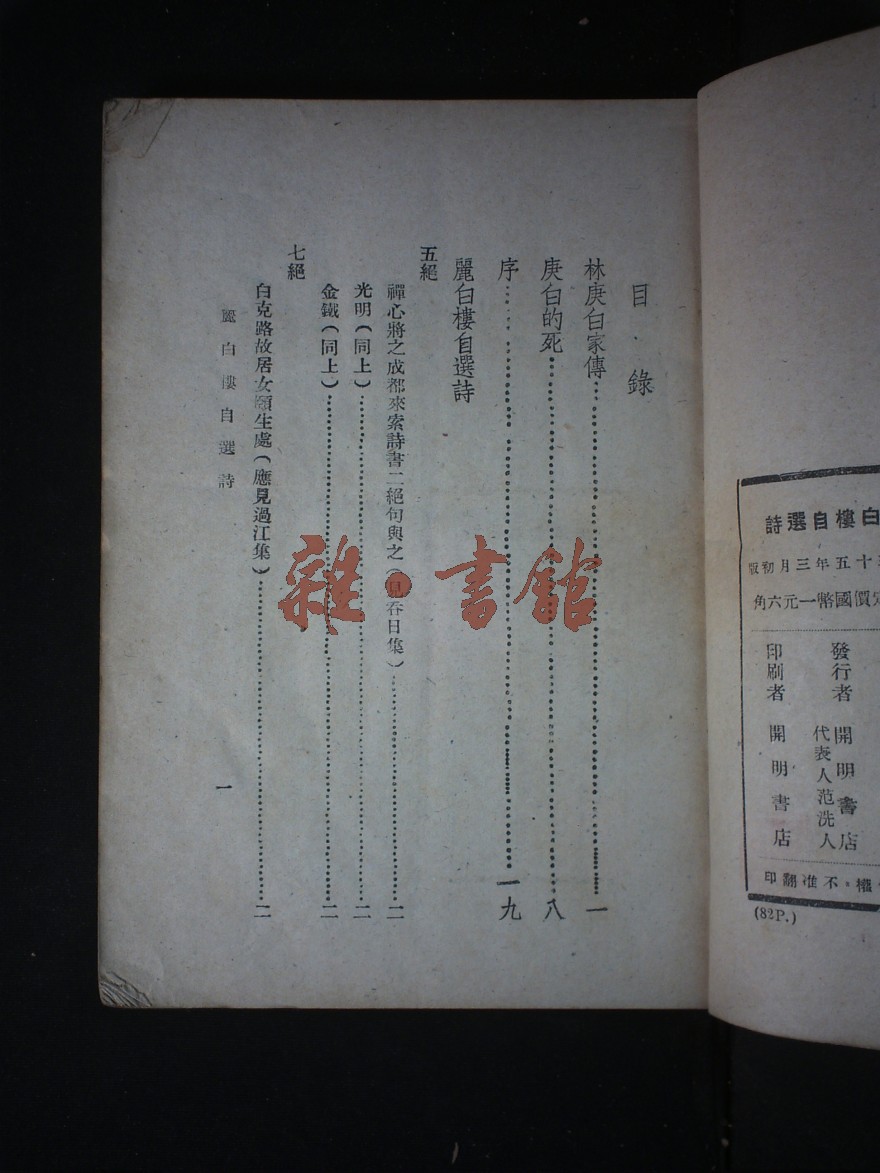 目錄
林庚白家傳……一
庚白的死……八
序……一九
麗白樓自選詩
五絕
禪心將之成都來索詩書二絕句與之（見吞日集）……二
光明（同上）……二
金鐵（同上）……二
七絕
白克路故居女頤生處（應見過江集）……二
麗白樓自選詩
一
雜·書館
白樓自選詩
十五年三月初版
價國幣一元六角
發行者 開明書店
代表人范洗人
印刷者 開明書店
權·不准翻印
(82P.)